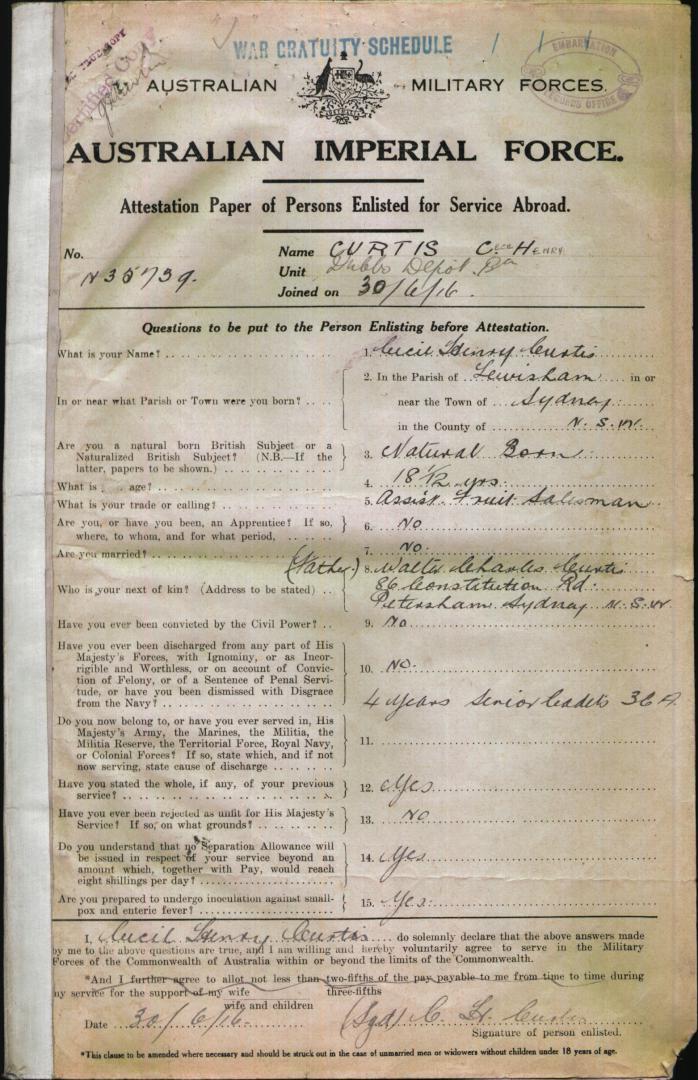 TRUE COPY
WAR GRATUITY SCHEDULE
EMBARKATION
RECORDS OFFICE
Certified Copy
AUSTRALIAN MILITARY FORCES.
AUSTRALIAN IMPERIAL FORCE.
Attestation Paper of Persons Enlisted for Service Abroad.
No. N35739.
Name CURTIS Cecil HENRY
Unit Dubbo Depot Bn
Joined on 30/6/16.
Questions to be put to the Person Enlisting before Attestation.
What is your Name? 1. Cecil Henry Curtis
In or near what Parish or Town were you born? 2. In the Parish of Lewisham in or
near the Town of Sydney
in the County of N.S.W.
Are you a natural born British Subject or a
Naturalized British Subject? (N.B.—If the
latter, papers to be shown.) 3. Natural Born
What is age? 4. 18 1/12 yrs.
What is your trade or calling? 5. Assist. Fruit Salesman
Are you, or have you been, an Apprentice? If so,
where, to whom, and for what period, 6. No
Are you married? 7. No.
Who is your next of kin? (Address to be stated) (Father) 8. Walter Charles Curtis
86 Constitution Rd.
Petersham Sydney N.S.W.
Have you ever been convicted by the Civil Power? 9. No
Have you ever been discharged from any part of His
Majesty's Forces, with Ignominy, or as Incor-
rigible and Worthless, or on account of Convic-
tion of Felony, or of a Sentence of Penal Servi-
tude, or have you been dismissed with Disgrace
from the Navy? 10. No.
4 years Senior Cadets 36 A.
Do you now belong to, or have you ever served in, His
Majesty's Army, the Marines, the Militia, the
Militia Reserve, the Territorial Force, Royal Navy,
or Colonial Forces? If so, state which, and if not
now serving, state cause of discharge 11.
Have you stated the whole, if any, of your previous
service? 12. Yes
Have you ever been rejected as unfit for His Majesty's
Service? If so, on what grounds? 13. No
Do you understand that no Separation Allowance will
be issued in respect of your service beyond an
amount which, together with Pay, would reach
eight shillings per day? 14. Yes
Are you prepared to undergo inoculation against small-
pox and enteric fever? 15. Yes.
I, Cecil Henry Curtis do solemnly declare that the above answers made
by me to the above questions are true, and I am willing and hereby voluntarily agree to serve in the Military
Forces of the Commonwealth of Australia within or beyond the limits of the Commonwealth.
*And I further agree to allot not less than two-fifths of the pay payable to me from time to time during
three-fifths
my service for the support of my wife
wife and children
Date 30/6/16. (Sgd) C. H. Curtis
Signature of person enlisted.
*This clause to be amended where necessary and should be struck out in the case of unmarried men or widowers without children under 18 years of age.